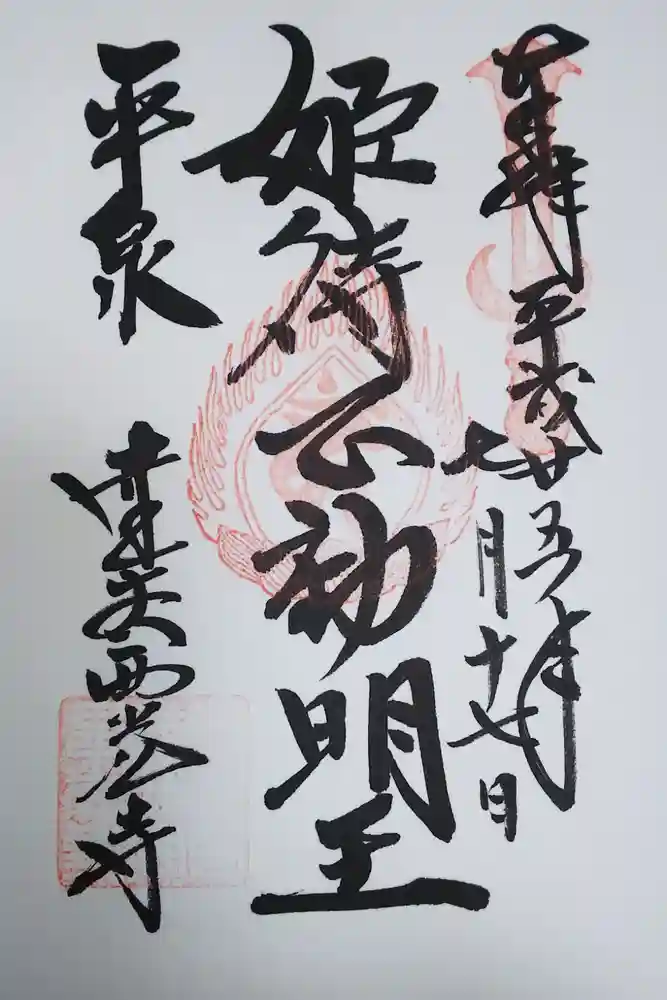 奉拝 平成廿五年
七月十七日
姫待不動明王
平泉 達谷西光寺